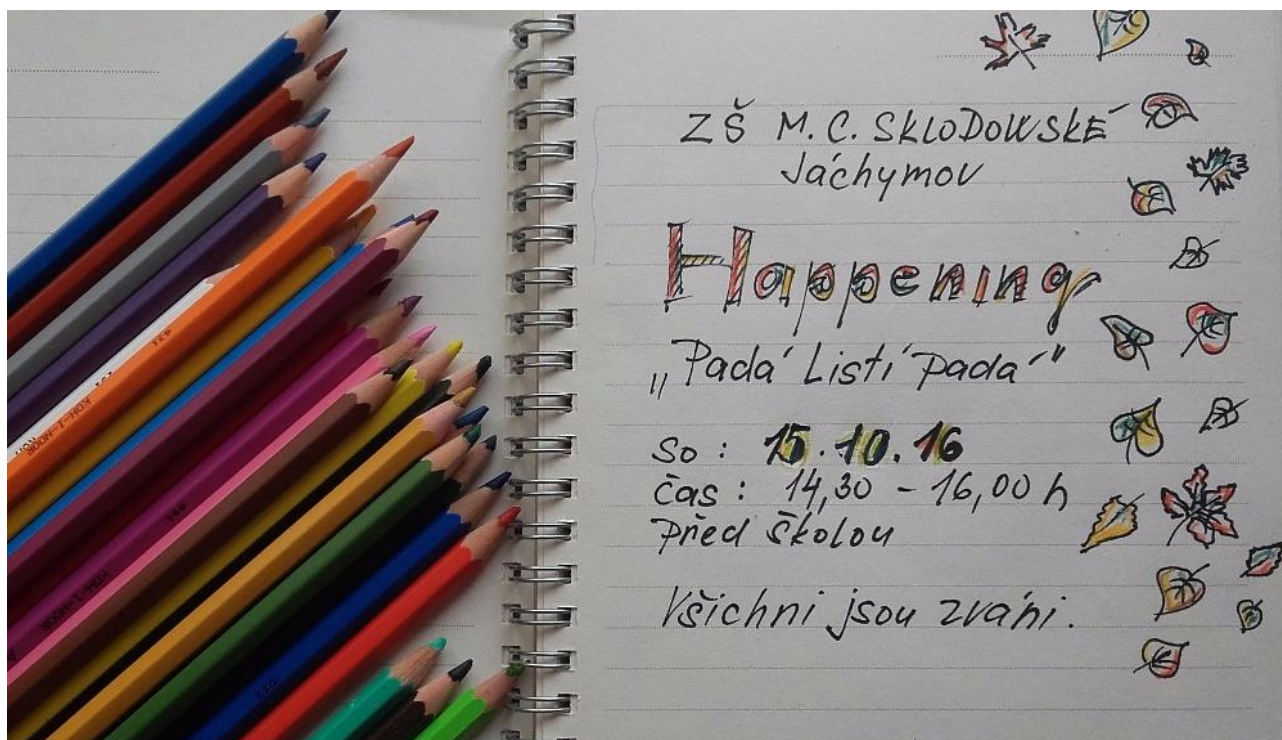 ZŠ M.C. SKLODOWSKÉ
Jáchymov
Happening
„Padá Listí padá"
so : 15.10.16
čas : 14,30 - 16,00 h
před školou
Všichni jsou zváni.
KOH-I-NOOR
KOH-I-NOOR